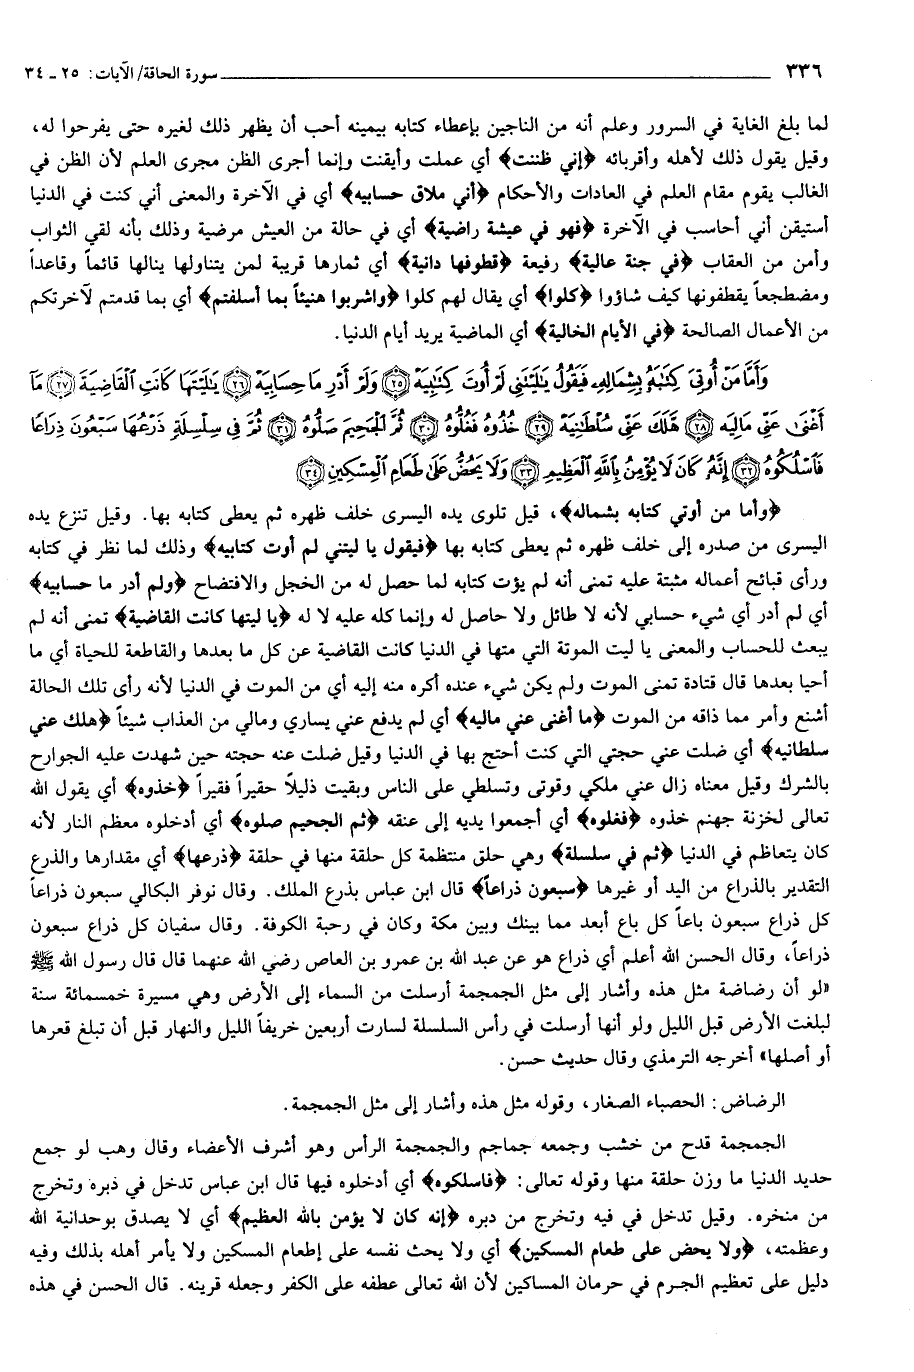 ٣٣٦ سورة الحاقة/ الآيات: ٢٥ ـ ٣٤
لما بلغ الغاية في السرور وعلم أنه من الناجين بإعطاء كتابه بيمينه أحب أن يظهر ذلك لغيره حتى يفرحوا له،
وقيل يقول ذلك لأهله وأقربائه ﴿إني ظننت﴾ أي عملت وأيقنت وإنما أجرى الظن مجرى العلم لأن الظن في
الغالب يقوم مقام العلم في العادات والأحكام ﴿أني ملاق حسابيه﴾ أي في الآخرة والمعنى أني كنت في الدنيا
أستيقن أني أحاسب في الآخرة ﴿فهو في عيشة راضية﴾ أي في حالة من العيش مرضية وذلك بأنه لقي الثواب
وأمن من العقاب ﴿في جنة عالية﴾ رفيعة ﴿قطوفها دانية﴾ أي ثمارها قريبة لمن يتناولها ينالها قائماً وقاعداً
ومضطجعاً يقطفونها كيف شاؤوا ﴿كلوا﴾ أي يقال لهم كلوا ﴿واشربوا هنيئاً بما أسلفتم﴾ أي بما قدمتم لآخرتكم
من الأعمال الصالحة ﴿في الأيام الخالية﴾ أي الماضية يريد أيام الدنيا.
وَأَمَّا مَنْ أُوتِيَ كِتَٰبَهُۥ بِشِمَالِهِۦ فَيَقُولُ يَٰلَيْتَنِي لَمْ أُوتَ كِتَٰبِيَهْ ﴿٢٥﴾ وَلَمْ أَدْرِ مَا حِسَابِيَهْ ﴿٢٦﴾ يَٰلَيْتَهَا كَانَتِ ٱلْقَاضِيَةَ ﴿٢٧﴾ مَآ
أَغْنَىٰ عَنِّي مَالِيَهْ ﴿٢٨﴾ هَلَكَ عَنِّي سُلْطَٰنِيَهْ ﴿٢٩﴾ خُذُوهُ فَغُلُّوهُ ﴿٣٠﴾ ثُمَّ ٱلْجَحِيمَ صَلُّوهُ ﴿٣١﴾ ثُمَّ فِي سِلْسِلَةٍ ذَرْعُهَا سَبْعُونَ ذِرَاعًا
فَٱسْلُكُوهُ ﴿٣٢﴾ إِنَّهُۥ كَانَ لَا يُؤْمِنُ بِٱللَّهِ ٱلْعَظِيمِ ﴿٣٣﴾ وَلَا يَحُضُّ عَلَىٰ طَعَامِ ٱلْمِسْكِينِ ﴿٣٤﴾
﴿وأما من أوتي كتابه بشماله﴾، قيل تلوى يده اليسرى خلف ظهره ثم يعطى كتابه بها. وقيل تنزع يده
اليسرى من صدره إلى خلف ظهره ثم يعطى كتابه بها ﴿فيقول يا ليتني لم أوت كتابيه﴾ وذلك لما نظر في كتابه
ورأى قبائح أعماله مثبتة عليه تمنى أنه لم يؤت كتابه لما حصل له من الخجل والافتضاح ﴿ولم أدر ما حسابيه﴾
أي لم أدر أي شيء حسابي لأنه لا طائل ولا حاصل له وإنما كله عليه لا له ﴿يا ليتها كانت القاضية﴾ تمنى أنه لم
يبعث للحساب والمعنى يا ليت الموتة التي متها في الدنيا كانت القاضية عن كل ما بعدها والقاطعة للحياة أي ما
أحيا بعدها قال قتادة تمنى الموت ولم يكن شيء عنده أكره منه إليه أي من الموت في الدنيا لأنه رأى تلك الحالة
أشنع وأمر مما ذاقه من الموت ﴿ما أغنى عني ماليه﴾ أي لم يدفع عني يساري ومالي من العذاب شيئاً ﴿هلك عني
سلطانيه﴾ أي ضلت عني حجتي التي كنت أحتج بها في الدنيا وقيل ضلت عنه حجته حين شهدت عليه الجوارح
بالشرك وقيل معناه زال عني ملكي وقوتى وتسلطي على الناس وبقيت ذليلاً حقيراً فقيراً ﴿خذوه﴾ أي يقول الله
تعالى لخزنة جهنم خذوه ﴿فغلوه﴾ أي أجمعوا يديه إلى عنقه ﴿ثم الجحيم صلوه﴾ أي أدخلوه معظم النار لأنه
كان يتعاظم في الدنيا ﴿ثم في سلسلة﴾ وهي حلق منتظمة كل حلقة منها في حلقة ﴿ذرعها﴾ أي مقدارها والذرع
التقدير بالذراع من اليد أو غيرها ﴿سبعون ذراعاً﴾ قال ابن عباس بذرع الملك. وقال نوفر البكالي سبعون ذراعاً
كل ذراع سبعون باعاً كل باع أبعد مما بينك وبين مكة وكان في رحبة الكوفة. وقال سفيان كل ذراع سبعون
ذراعاً، وقال الحسن الله أعلم أي ذراع هو عن عبد الله بن عمرو بن العاص رضي الله عنهما قال قال رسول الله ﷺ
«لو أن رضاضة مثل هذه وأشار إلى مثل الجمجمة أرسلت من السماء إلى الأرض وهي مسيرة خمسمائة سنة
لبلغت الأرض قبل الليل ولو أنها أرسلت في رأس السلسلة لسارت أربعين خريفاً الليل والنهار قبل أن تبلغ قعرها
أو أصلها» أخرجه الترمذي وقال حديث حسن.
الرضاض: الحصباء الصغار، وقوله مثل هذه وأشار إلى مثل الجمجمة.
الجمجمة قدح من خشب وجمعه جماجم والجمجمة الرأس وهو أشرف الأعضاء وقال وهب لو جمع
حديد الدنيا ما وزن حلقة منها وقوله تعالى: ﴿فاسلكوه﴾ أي أدخلوه فيها قال ابن عباس تدخل في دبره وتخرج
من منخره. وقيل تدخل في فيه وتخرج من دبره ﴿إنه كان لا يؤمن بالله العظيم﴾ أي لا يصدق بوحدانية الله
وعظمته، ﴿ولا يحض على طعام المسكين﴾ أي ولا يحث نفسه على إطعام المسكين ولا يأمر أهله بذلك وفيه
دليل على تعظيم الجرم في حرمان المساكين لأن الله تعالى عطفه على الكفر وجعله قرينه. قال الحسن في هذه